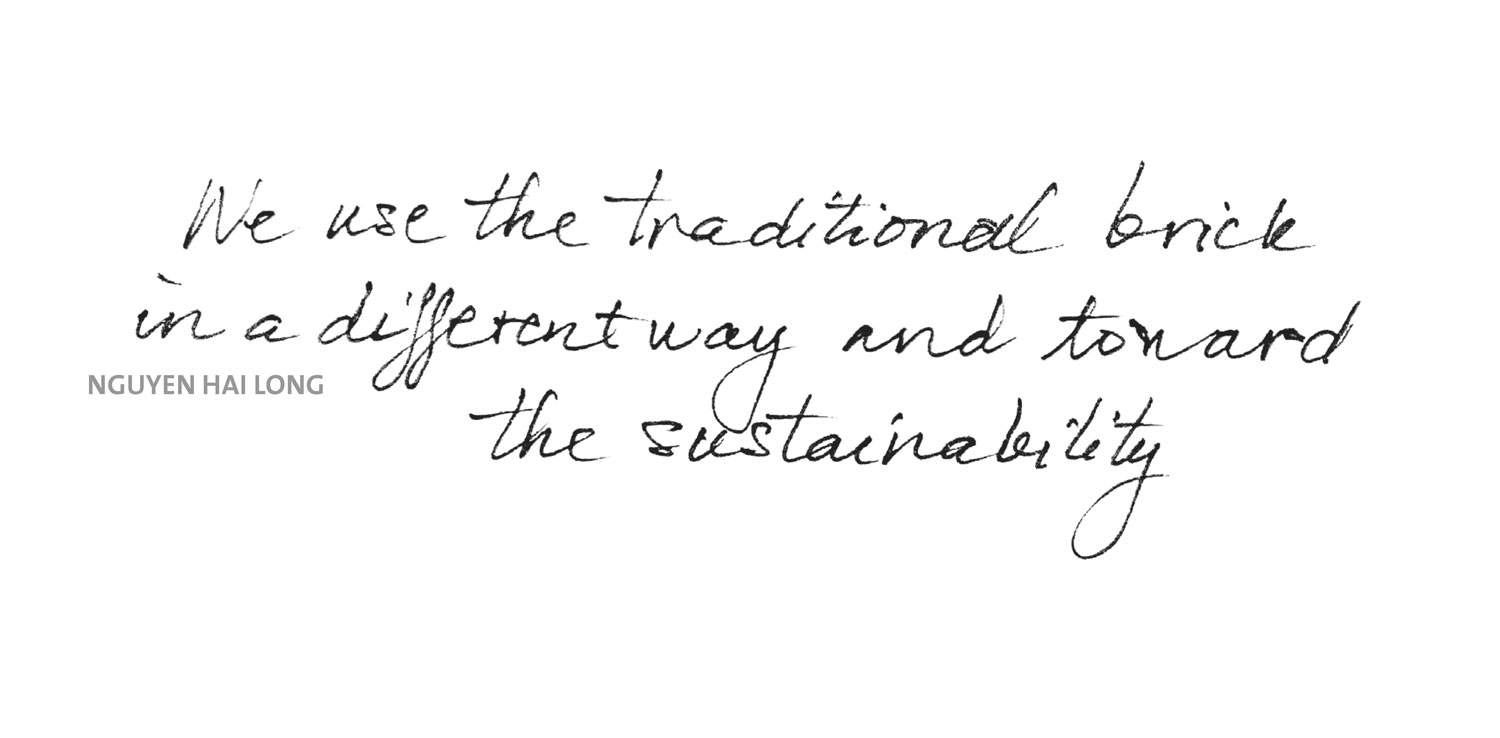 We use the traditional brick
in a different way and toward
NGUYEN HAI LONG
the sustainability